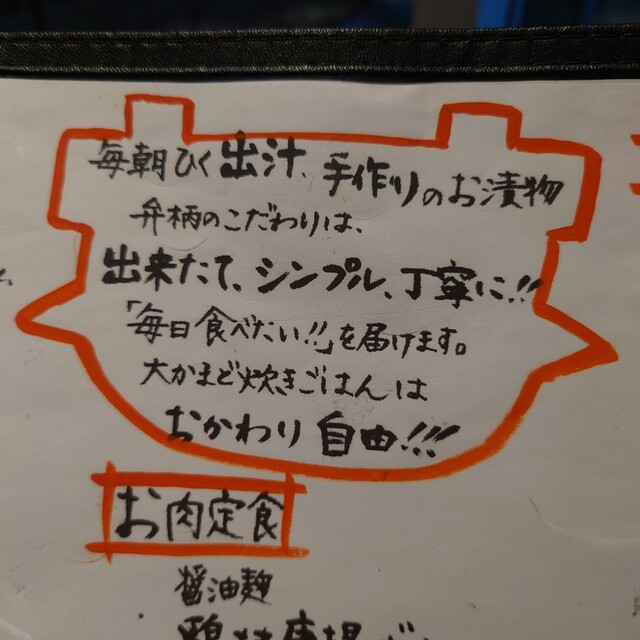 毎朝ひく出汁、手作りのお漬物
弁柄のこだわりは、
出来たて、シンプル、丁寧に!!
「毎日食べたい!!」を届けます。
大かまど炊きごはんは
おかわり自由!!!
お肉定食
醤油麹